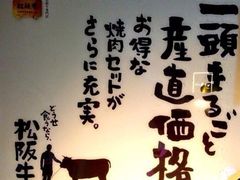 一頭まるごと
産直価格
お得な
焼肉セットが
さらに充実。
どうせ
食うなら、
松阪牛